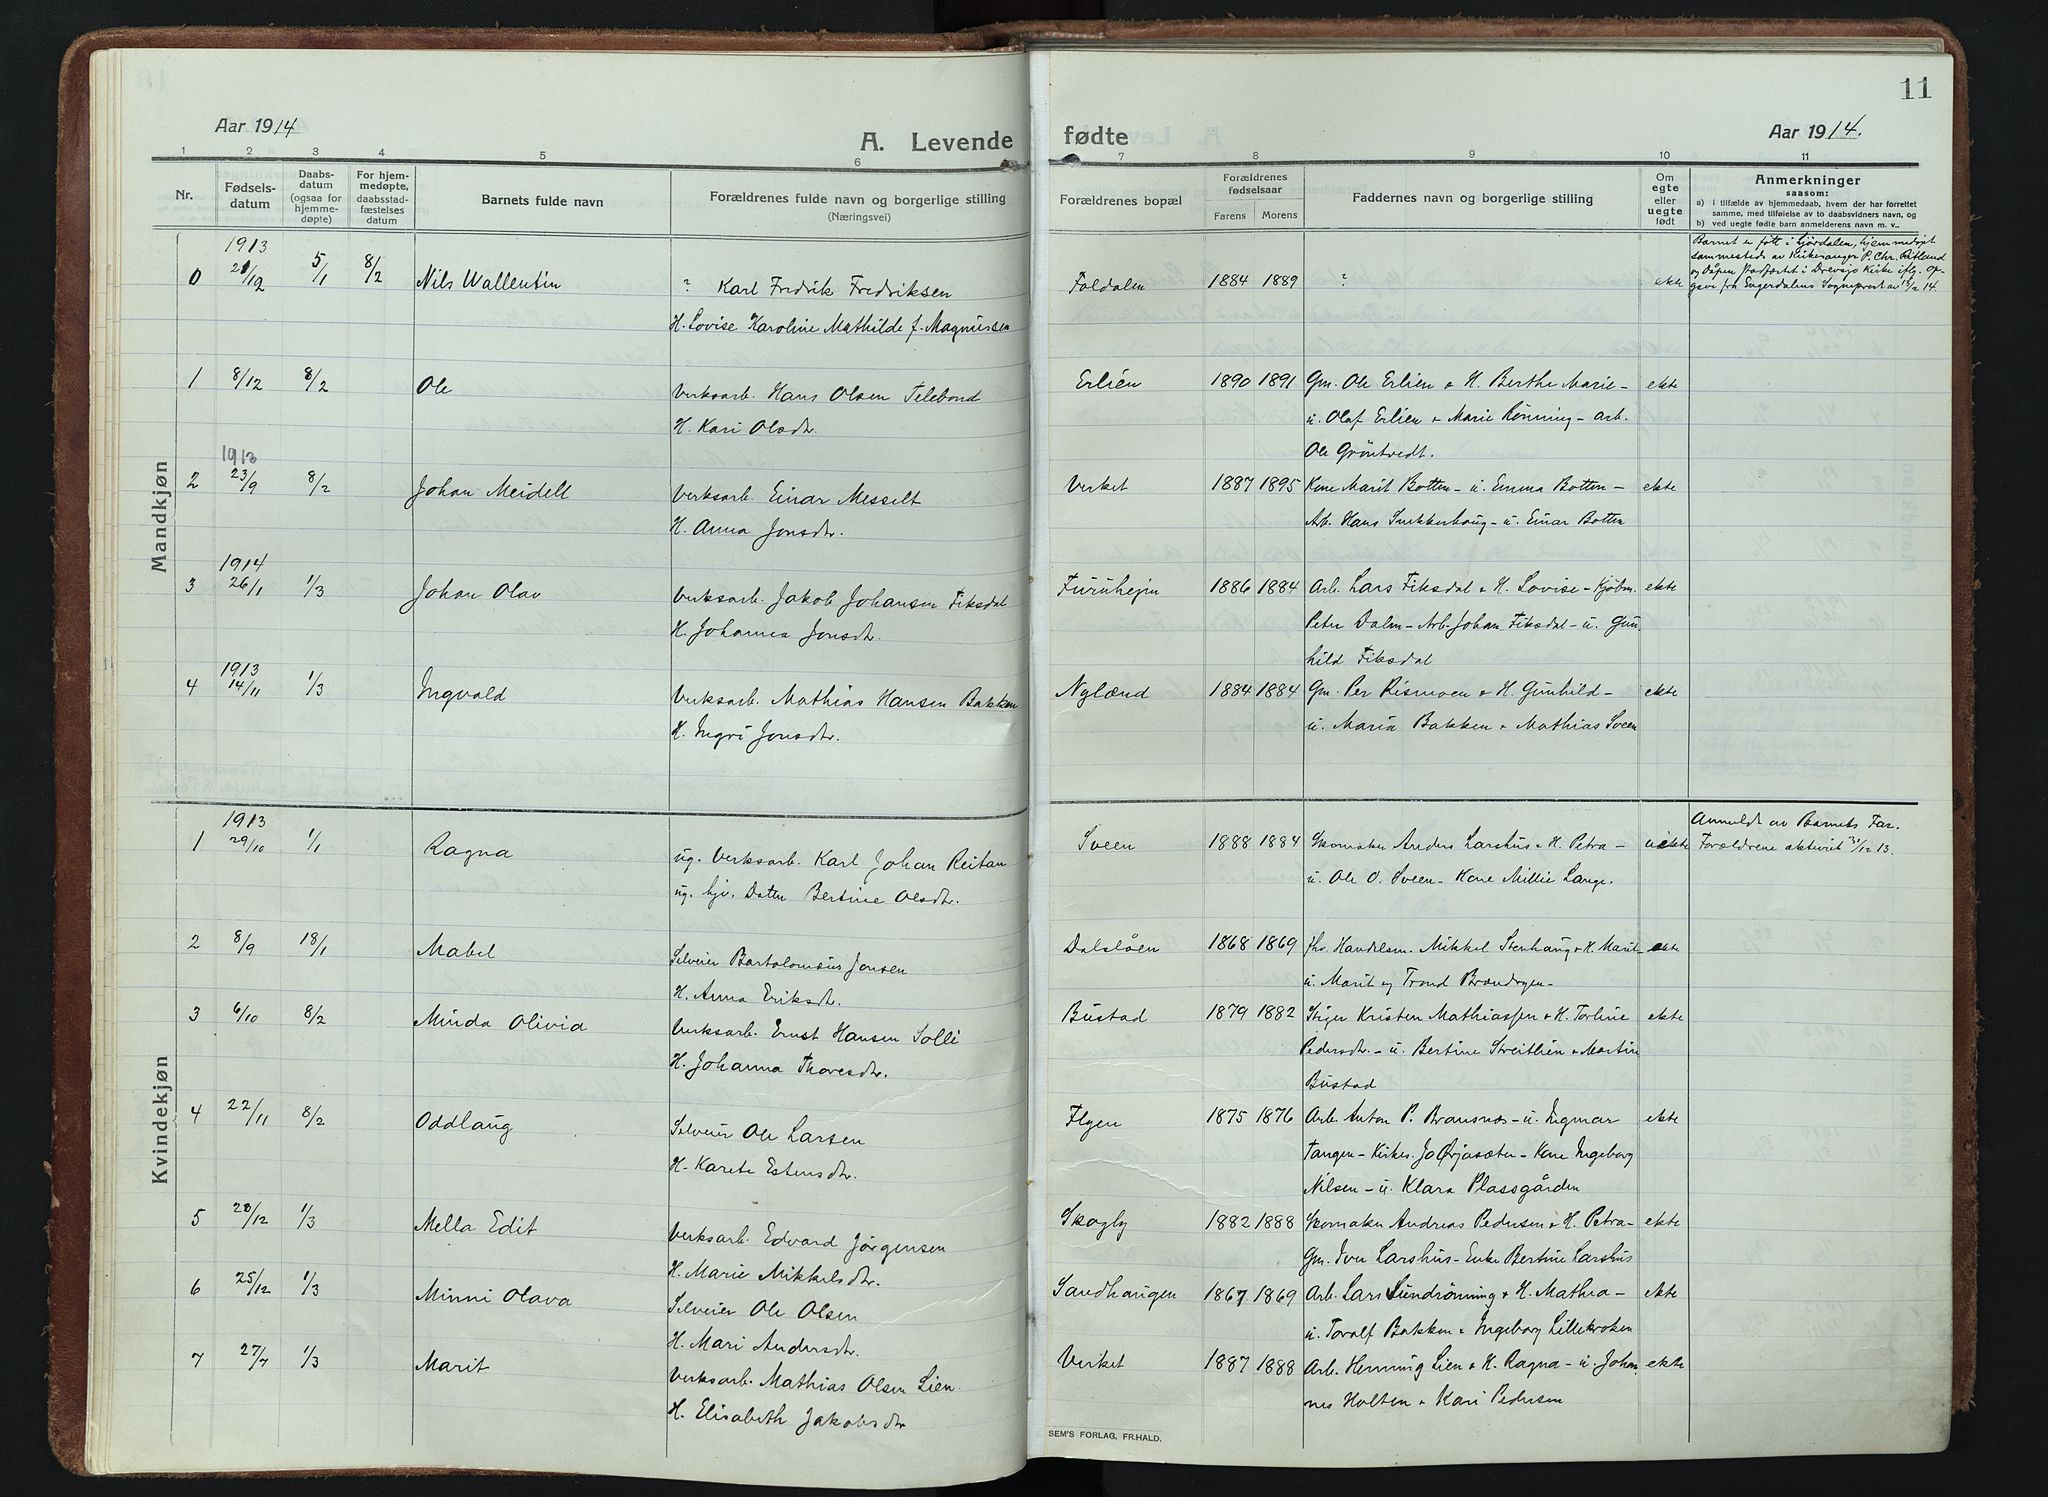 11
Aar 1914
A. Levende fødte
Aar 1914.
1 2 3 4 5 6 7 8 9 10 11
Nr.
Fødsels-
datum
Daabs-
datum
(ogsaa for
hjemme-
døpte)
For hjem-
medøpte,
daabsstad-
fæstelses
datum
Barnets fulde navn
Forældrenes fulde navn og borgerlige stilling
(Næringsvei)
Forældrenes bopæl
Forældrenes
fødselsaar
Farens Morens
Faddernes navn og borgerlige stilling
Om
egte
eller
uegte
født
Anmerkninger
saasom:
a) i tilfælde av hjemmedaab, hvem der har forrettet
samme, med tilføielse av to daabsvidners navn, og
b) ved uegte fødte barn anmelderens navn m. v..
Mandkjøn
1913
0 21/12 5/1 8/2 Nils Wallentin ? Karl Fredrik Fredriksen Foldalen 1884 1889 ? ekte
H. Lovise Karoline Mathilde f. Magnussen
Barnet er født i Sjørdalen, hjemmedøpt
sammesteds av Kirkesanger P. Chr. Ritland
og Dåpen stadfæstet i Drevsjø Kirke iflg. op-
gave fra Engerdalens Sogneprest av 13/2 14.
1 8/12 8/2 Ole Verksarb. Hans Olsen Telebond Erlien 1890 1891 Gm. Ole Erlien & H. Berthe Marie – ekte
H. Kari Olsdtr. u. Olaf Erlien & Marie Rønning – arb.
Ole Grøntvedt.
1913
2 23/9 8/2 Johan Meidell Verksarb. Einar Messelt Verket 1887 1895 Kone Marit Botten – u. Emma Botten – ekte
H. Anna Jonsdtr. Arb. Hans Snekkerhaug – u. Einar Botten
1914
3 26/1 1/3 Johan Olav Verksarb. Jakob Johansen Fiksdal Furuhejm 1886 1884 Arb. Lars Fiksdal & H. Lovise – Kjøbm. ekte
H. Johanna Jonsdtr. Peter Dalen – Arb. Johan Fiksdal – u. Gun
hild Fiksdal
1913
4 14/11 1/3 Ingvald Verksarb. Mathias Hansen Bakken Nylænd 1884 1884 Gm. Per Rismoen & H. Gunhild – ekte
H. Ingri Jonsdtr. u. Maria Bakken & Mathias Sveen
Kvindekjøn
1913
1 29/10 1/1 Ragna ug. Verksarb. Karl Johan Reitan Sveen 1888 1884 Skomaker Anders Larshus & H. Petra – uekte
ug. hjv. Daten Bertine Olsdtr. u. Ole O. Sveen – Kone Millie Lange.
Anmeldt av Barnets Far.
Forældrene ekteviet 31/12 13.
2 8/9 18/1 Mabel Selveier Bartolomæus Jonsen Dalsløen 1868 1869 fhv. Handelsm. Mikkel Stenhaug & H. Marit – ekte
H. Anna Eriksdtr. u. Marit og Trond Brændryen –
3 6/10 8/2 Minda Olivia Verksarb. Ernst Hansen Solli Bustad 1879 1882 Stiger Kristen Mathiassen & H. Torline ekte
H. Johanna Thoresdtr. Pedersdtr. – u. Bertine Streitlien & Martin
Bustad
4 22/11 8/2 Oddlaug Selveier Ole Larsen Flyen 1875 1876 Arb. Anton P. Bransnæs – u. Ingmar ekte
H. Karete Estensdtr. Tangen – Kirkes. Jo Ørjasæter – Kone Ingeborg
Nilsen – u. Klara Plassgården
5 28/12 1/3 Mella Edit Verksarb. Edvard Jørgensen Skogly 1882 1888 Skomaker Andreas Pedersen & H. Petra – ekte
H. Marie Mikkelsdtr. Gm. Iver Larshus – Enke Bertine Larshus
6 25/12 1/3 Minni Olava Selveier Ole Olsen Sandhaugen 1867 1869 Arb. Lars Sundrønning & H. Mathea – ekte
H. Mari Andersdtr. u. Toralf Bakken & Ingeborg Lillekroken
7 27/7 1/3 Marit Verksarb. Mathias Olsen Lien Verket 1887 1888 Arb. Henning Lien & H. Ragna – u. Johan ekte
H. Elisabeth Jakobsdtr nes Holten & Kari Pedersen
SEM'S FORLAG, FR.HALD.